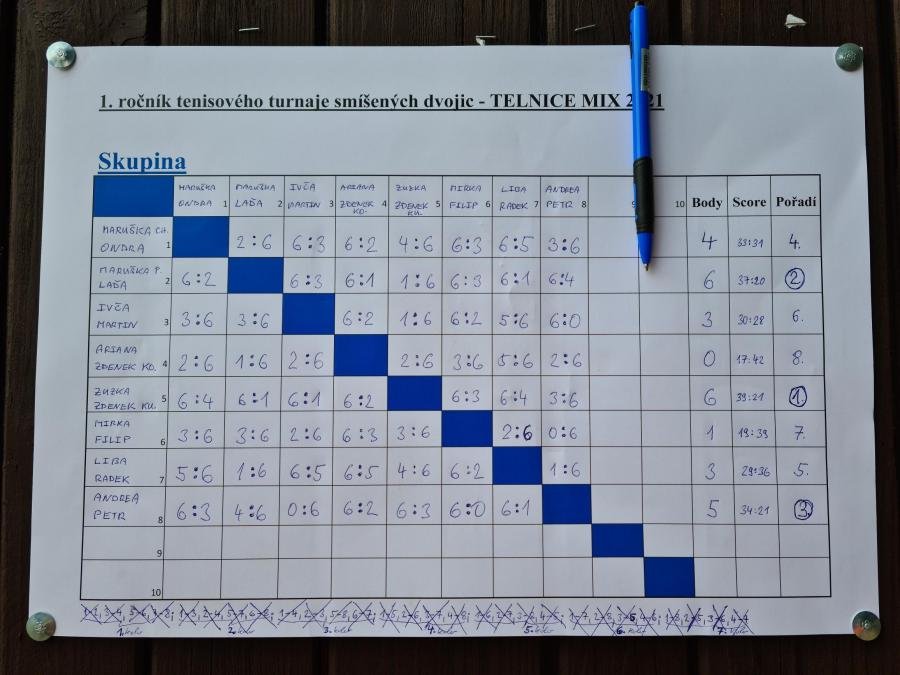 1. ročník tenisového turnaje smíšených dvojic - TELNICE MIX 2021
Skupina
MARUŠKA ONDRA 1 MARUŠKA LAĎA 2 IVČA MARTIN 3 ARIANA ZDENEK KO. 4 ZUZKA ZDENEK KU. 5 MIRKA FILIP 6 LIBA RADEK 7 ANDREA PETR 8 9 10 Body Score Pořadí
MARUŠKA CH. ONDRA 1 2:6 6:3 6:2 4:6 6:3 6:5 3:6 4 33:31 4.
MARUŠKA P. LAĎA 2 6:2 6:3 6:1 1:6 6:3 6:1 6:4 6 37:20 2
IVČA MARTIN 3 3:6 3:6 6:2 1:6 6:2 5:6 6:0 3 30:28 6.
ARIANA ZDENEK KO. 4 2:6 1:6 2:6 2:6 3:6 5:6 2:6 0 17:42 8.
ZUZKA ZDENEK KU. 5 6:4 6:1 6:1 6:2 6:3 6:4 3:6 6 39:21 1.
MIRKA FILIP 6 3:6 3:6 2:6 6:3 3:6 2:6 0:6 1 19:39 7.
LIBA RADEK 7 5:6 1:6 6:5 6:5 4:6 6:2 1:6 3 29:36 5.
ANDREA PETR 8 6:3 4:6 0:6 6:2 6:3 6:0 6:1 5 34:21 3.
9
10
1. kolo 2. kolo 3. kolo 4. kolo 5. kolo 6. kolo 7. kolo